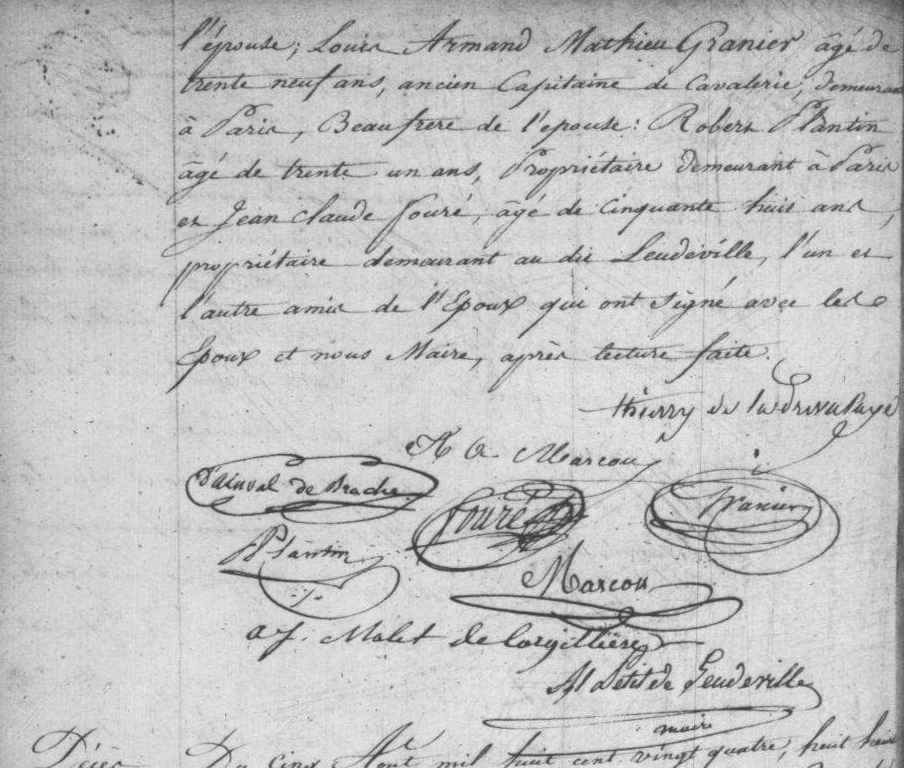 l'épouse; Louis Armand Mathieu Granier, âgé de
trente neuf ans, ancien Capitaine de Cavalerie, demeurant
à Paris, Beaufrere de l'epouse: Robert Plantin
âgé de trente un ans, Propriétaire demeurant à Paris
et Jean Claude fouré, âgé de cinquante huit ans,
propriétaire demeurant au dit Leudeville, l'un et
l'autre amis de l'Epoux qui ont signé avec les
Epoux et nous Maire, après lecture faite.
thierry de la
A Marcou
D'ainval de Brache
fouré
Granier
R Plantin
Marcou
a f. Malet de Cargillière
Petit de Leudeville
maire
Décès
Du cinq Aout mil huit cent vingt quatre, huit heures